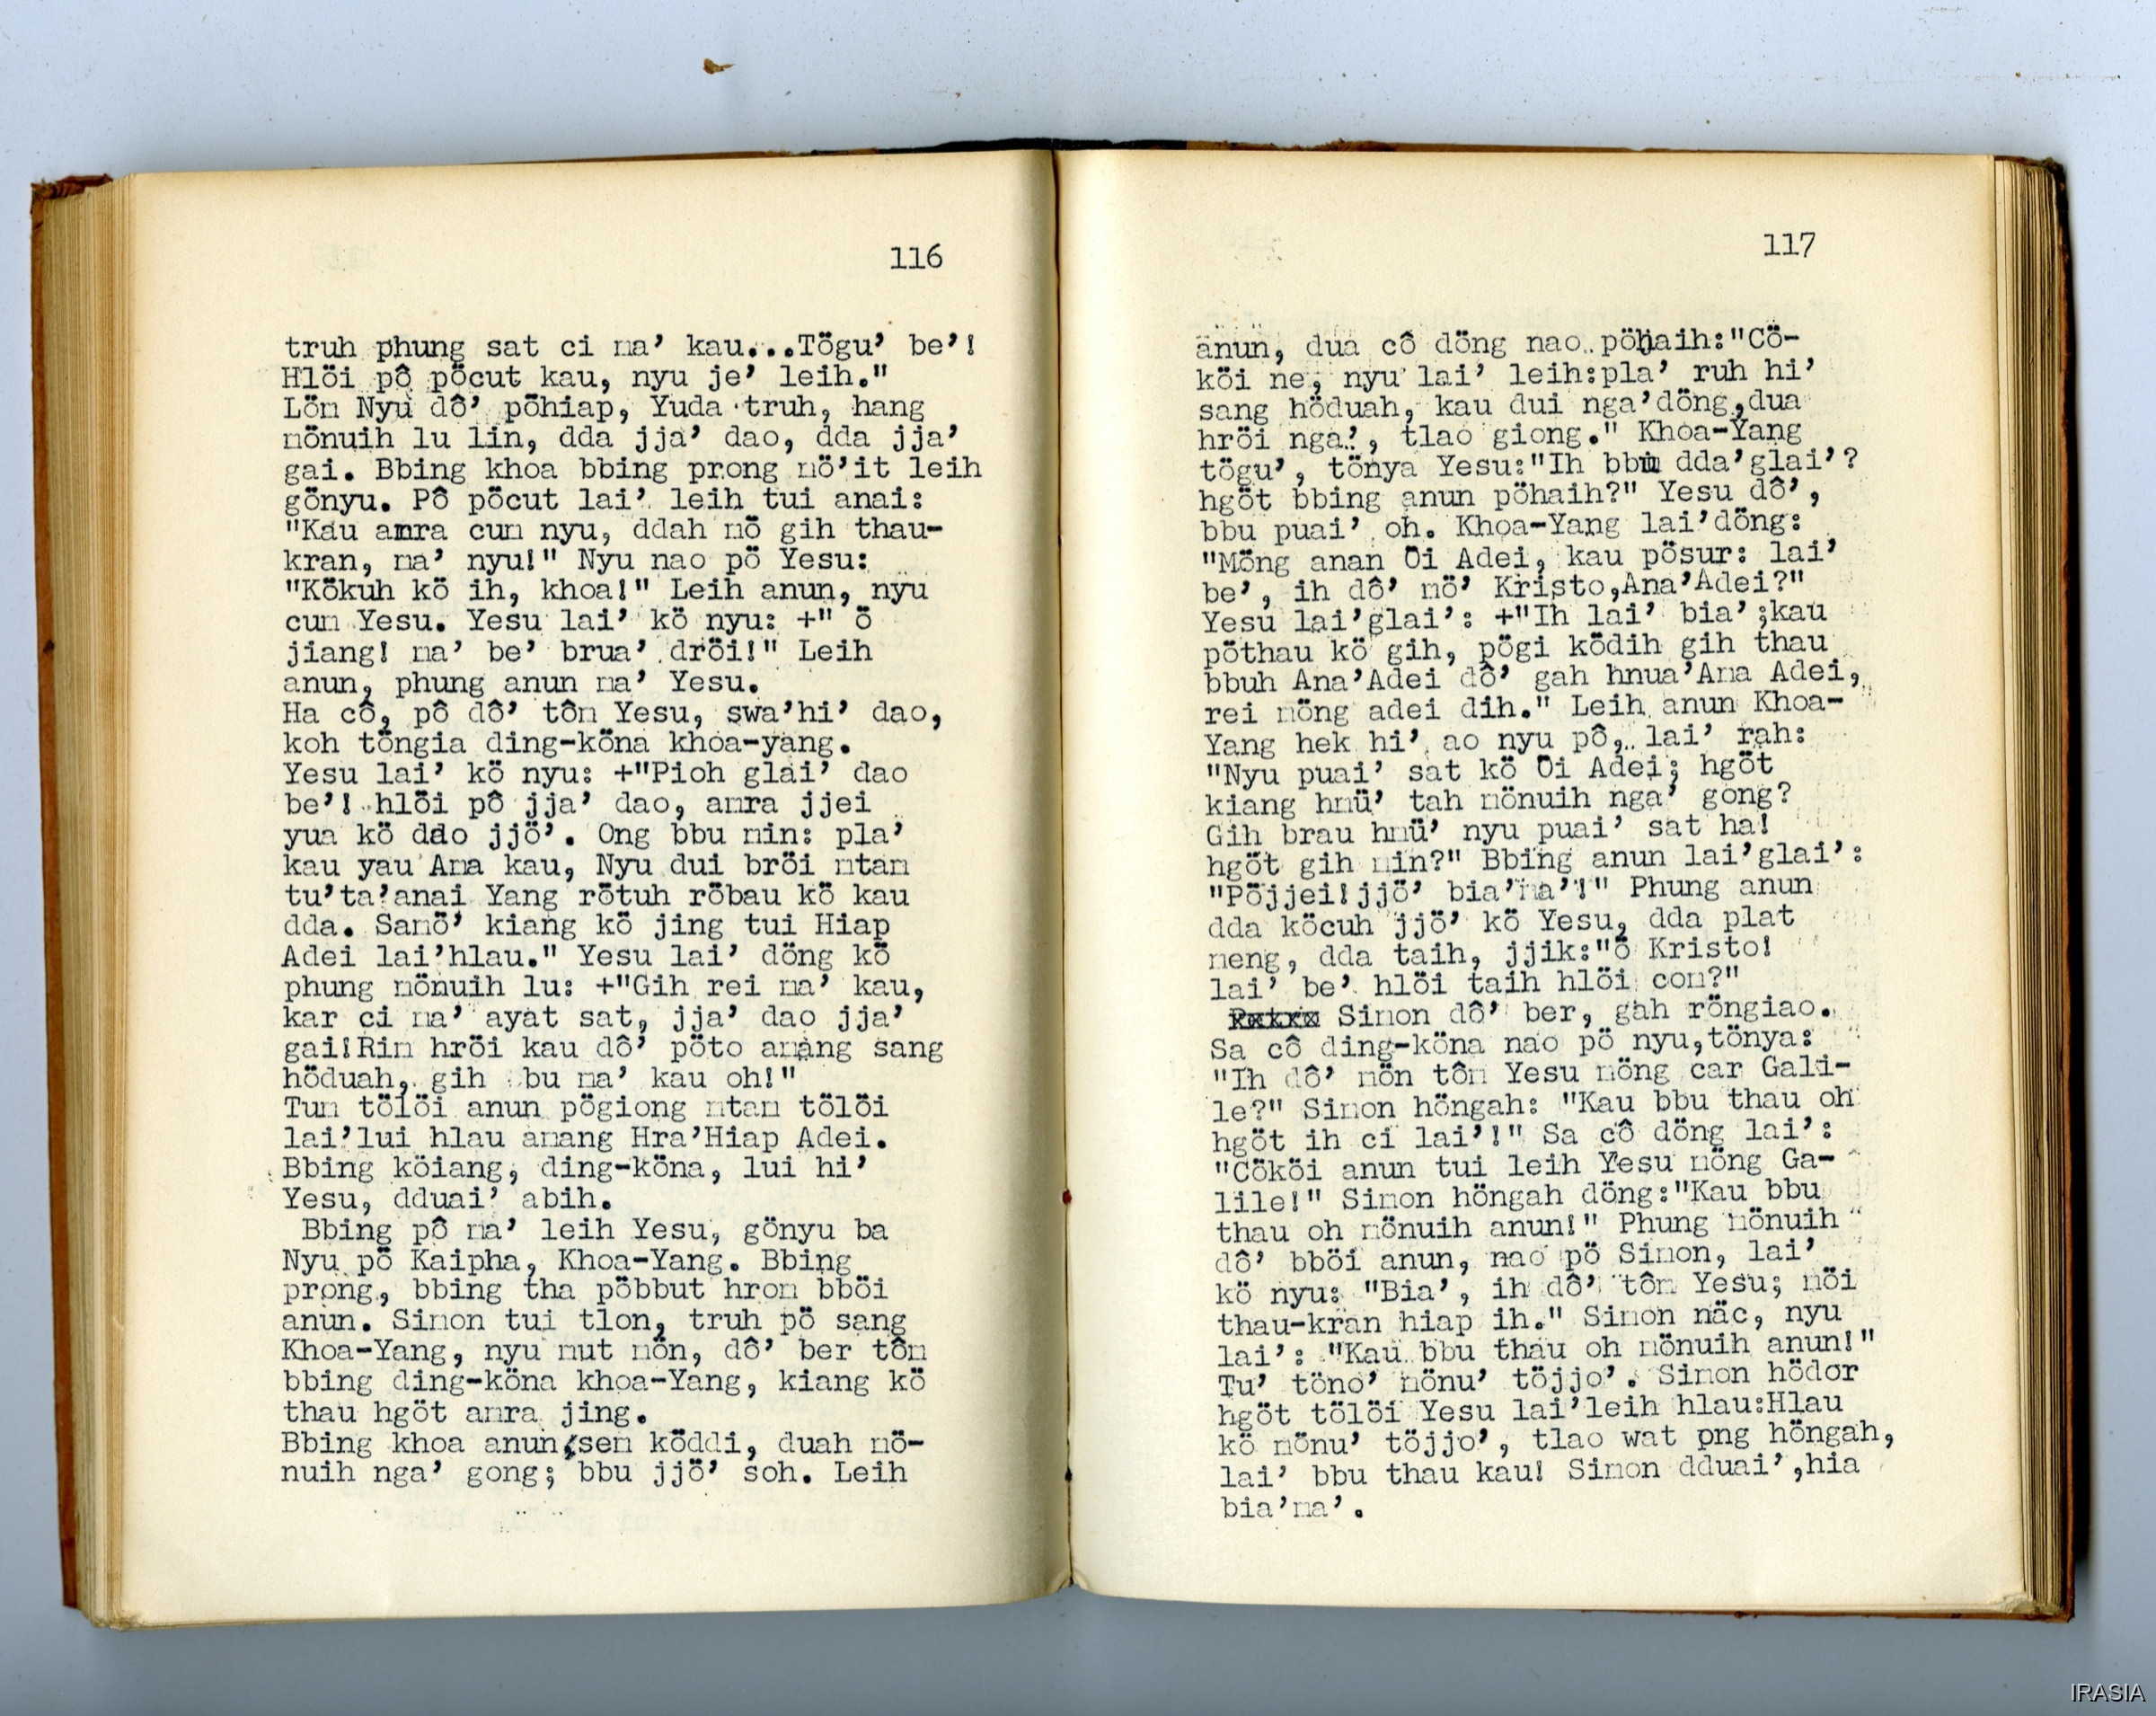 116
truh phung sat ci ma’ kau...Tögu’ be’!
Hlöi pô pöcut kau, nyu je’ leih."
Löm Nyu dô’ pöhiap, Yuda truh, hang
mönuih lu lin, dda jja’ dao, dda jja’
gai. Bbing khoa bbing prong mö’it leih
gönyu. Pô pöcut lai’ leih tui anai:
"Kau amra cum nyu, ddah mö gih thau-
kran, ma’ nyu!" Nyu nao pö Yesu:
"Kökuh kö ih, khoa!" Leih anun, nyu
cum Yesu. Yesu lai’ kö nyu: +" ö
jiang! ma’ be’ brua’ dröi!" Leih
anun, phung anun ma’ Yesu.
Ha cô, pô dô’ tôm Yesu, swa’hi’ dao,
koh töngia ding-köna khoa-yang.
Yesu lai’ kö nyu: +"Pioh glai’ dao
be’! hlöi pô jja’ dao, amra jjei
yua kö ddao jjö’. Ong bbu min: pla’
kau yau Ama kau, Nyu dui bröi mtam
tu’ta’anai Yang rötuh röbau kö kau
dda. Samö’ kiang kö jing tui Hiap
Adei lai’hlau." Yesu lai’ döng kö
phung mönuih lu: +"Gih rei ma’ kau,
kar ci ma’ ayat sat, jja’ dao jja’
gai!Rim hröi kau dô’ pöto amang sang
höduah, gih bu ma’ kau oh!"
Tum tölöi anun pögiong mtam tölöi
lai’lui hlau amang Hra’Hiap Adei.
Bbing köiang, ding-köna, lui hi’
Yesu, dduai’ abih.
Bbing pô ma’ leih Yesu, gönyu ba
Nyu pö Kaipha, Khoa-Yang. Bbing
prong, bbing tha pöbbut hrom bböi
anun. Simon tui tlon, truh pö sang
Khoa-Yang, nyu mut mön, dô’ ber tôm
bbing ding-köna khoa-Yang, kiang kö
thau hgöt amra jing.
Bbing khoa anun,sem köddi, duah mö-
nuih nga’ gong; bbu jjö’ soh. Leih
117
anun, dua cô döng nao pöhaih:"Cö-
köi ne, nyu lai’ leih:pla’ ruh hi’
sang höduah, kau dui nga’döng,dua
hröi nga’, tlao giong." Khoa-Yang
tögu’, tönya Yesu:"Ih bbu dda’glai’?
hgöt bbing anun pöhaih?" Yesu dô’,
bbu puai’ oh. Khoa-Yang lai’döng:
"Möng anan Öi Adei, kau pösur: lai’
be’, ih dô’ mö’ Kristo,Ana’Adei?"
Yesu lai’glai’: +"Ih lai’ bia’;kau
pöthau kö gih, pögi ködih gih thau
bbuh Ana’Adei dô’ gah hnua’Ama Adei,
rei möng adei dih." Leih anun Khoa-
Yang hek hi’ ao nyu pô, lai’ rah:
"Nyu puai’ sat kö Öi Adei; hgöt
kiang hmü’ tah mönuih nga’ gong?
Gih brau hmü’ nyu puai’ sat ha!
hgöt gih min?" Bbing anun lai’glai’:
"Pöjjei!jjö’ bia’ma’!" Phung anun
dda köcuh jjö’ kö Yesu, dda plat
meng, dda taih, jjik:"ö Kristo!
lai’ be’ hlöi taih hlöi com?"
Simon dô’ ber, gah röngiao.
Sa cô ding-köna nao pö nyu,tönya:
"Ih dô’ mön tôm Yesu möng car Gali-
le?" Simon höngah: "Kau bbu thau oh
hgöt ih ci lai’!" Sa cô döng lai’:
"Cököi anun tui leih Yesu möng Ga-
lile!" Simon höngah döng:"Kau bbu
thau oh mönuih anun!" Phung mönuih
dô’ bböi anun, nao pö Simon, lai’
kö nyu: "Bia’, ih dô’ tôm Yesu; möi
thau-kran hiap ih." Simon näc, nyu
lai’: "Kau bbu thau oh mönuih anun!"
Tu’ töno’ mönu’ töjjo’. Simon hödor
hgöt tölöi Yesu lai’leih hlau:Hlau
kö mönu’ töjjo’, tlao wat png höngah,
lai’ bbu thau kau! Simon dduai’,hia
bia’ma’.
IRASIA